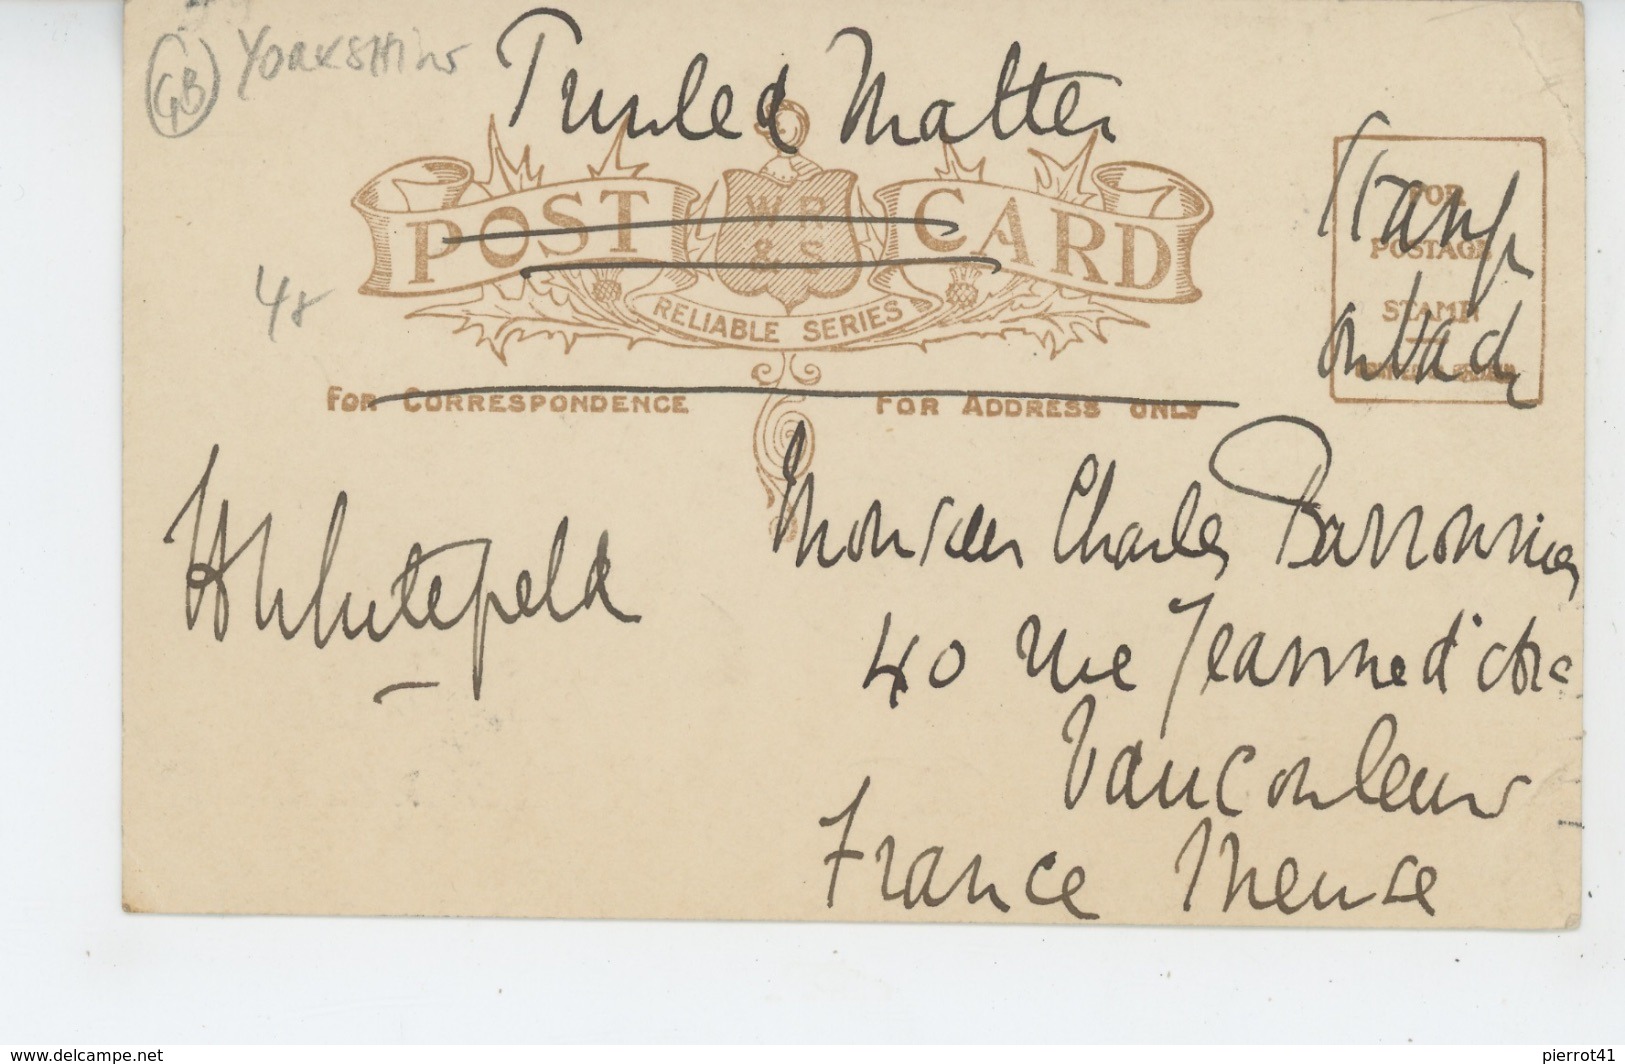 GB YORKSHIRE
Printed Matter
POST CARD
W.R.
& S
RELIABLE SERIES
FOR
POSTAGE
STAMP
Stamp
on back
48
FOR CORRESPONDENCE
FOR ADDRESS ONLY
H Whitefield
Monsieur Charles
40 rue Jeanne d'Arc
Vaucouleurs
France Meuse
www.delcampe.net
pierrot41